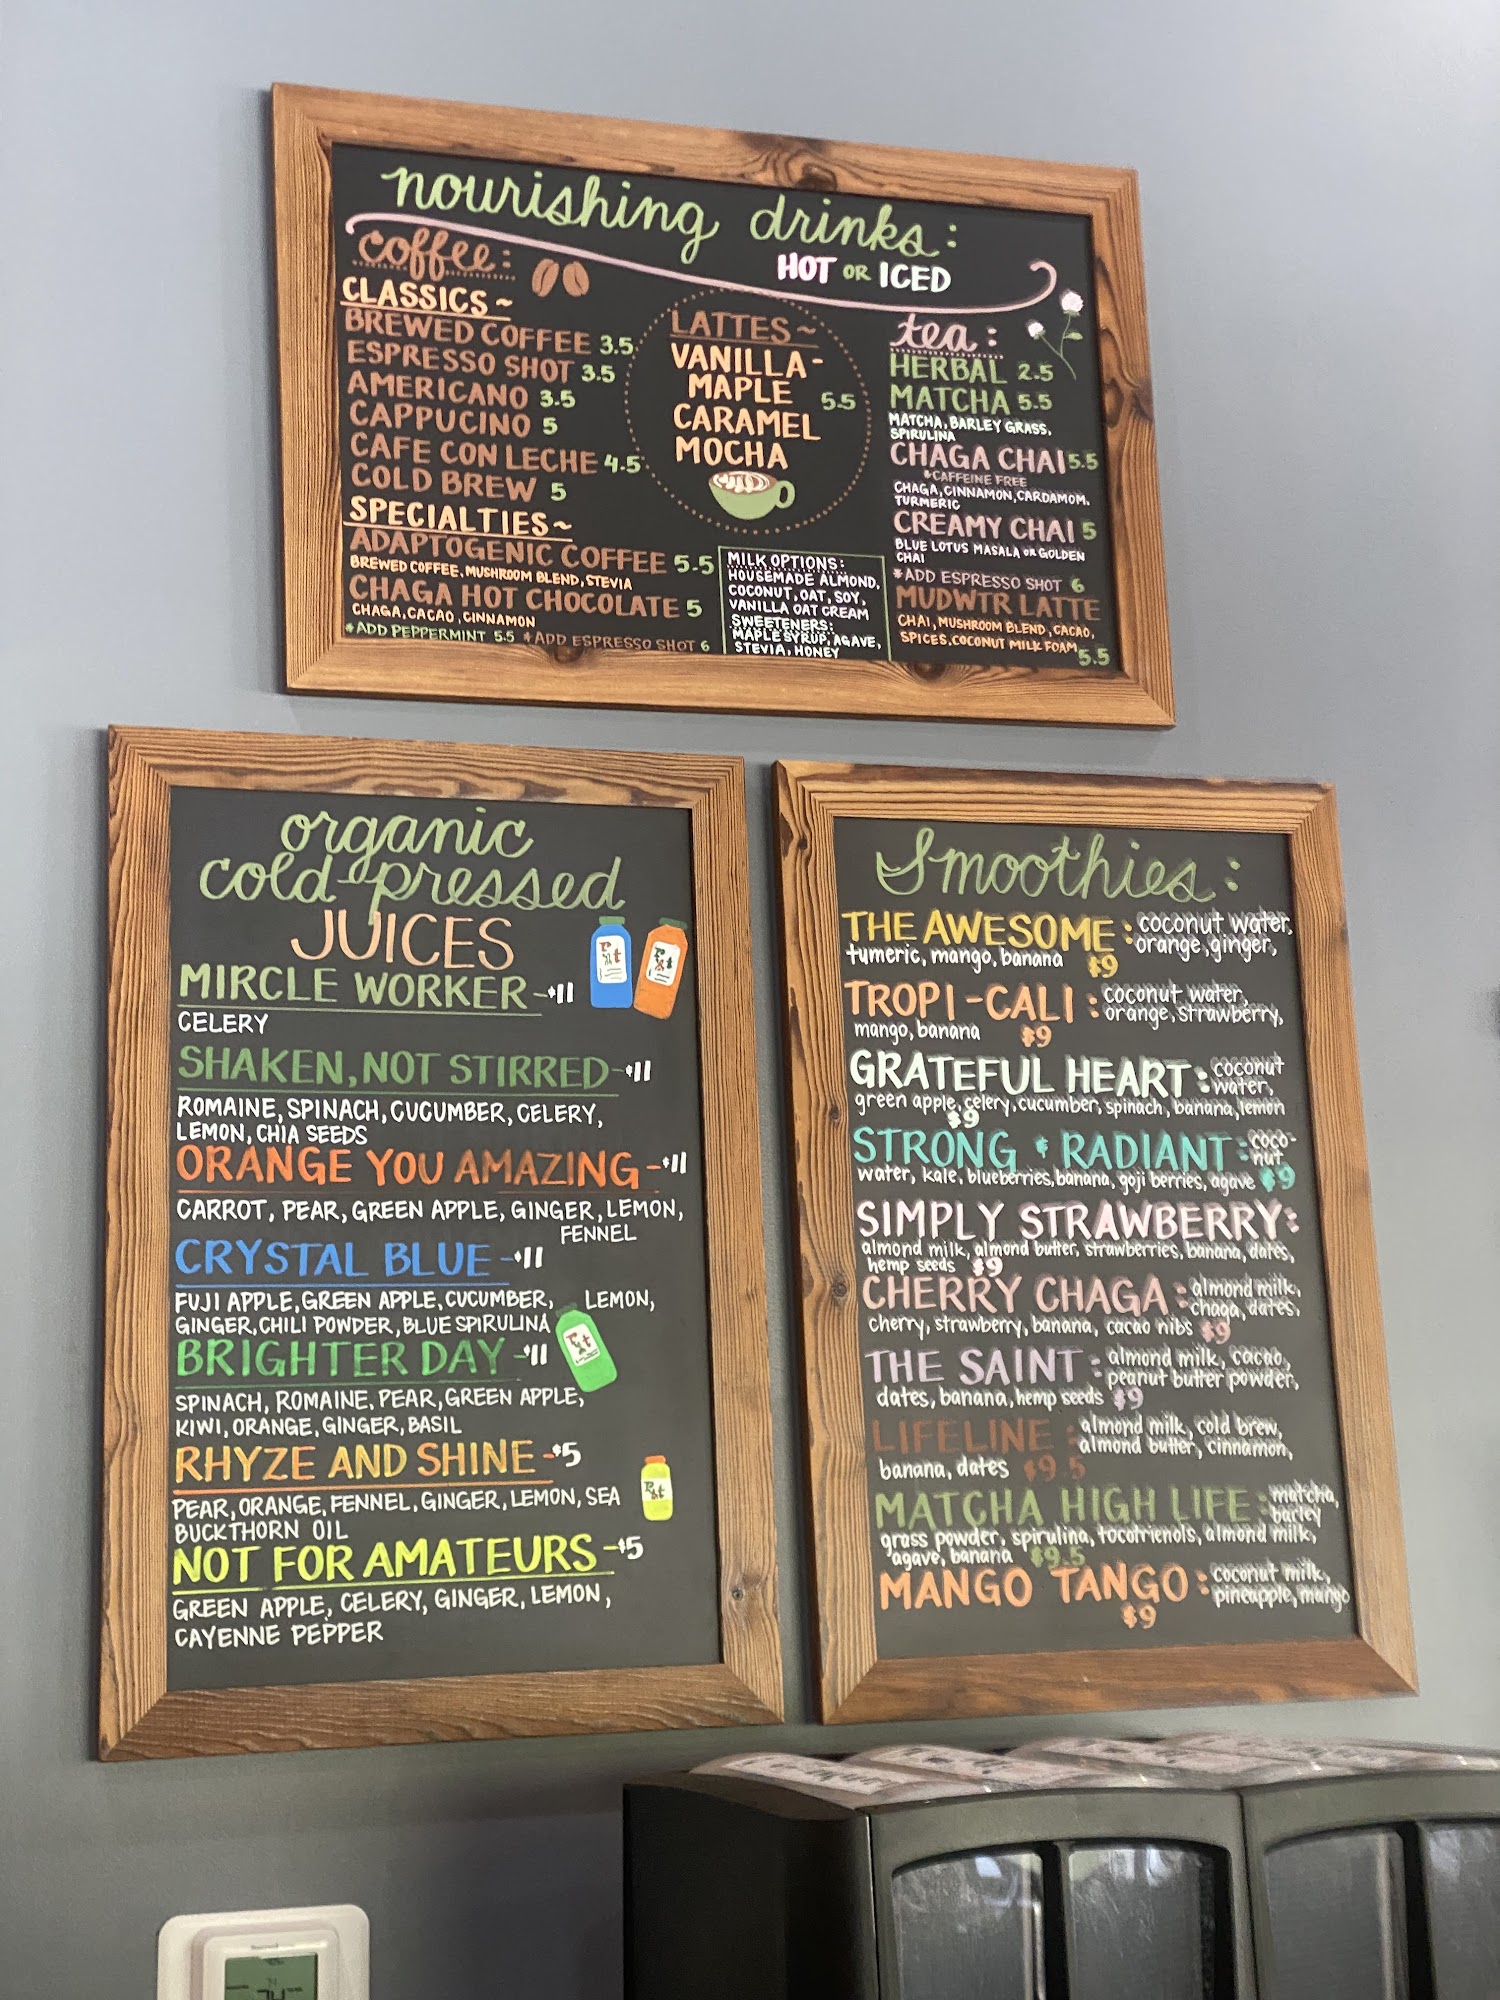 nourishing drinks:
HOT OR ICED
coffee:
CLASSICS~
BREWED COFFEE 3.5
ESPRESSO SHOT 3.5
AMERICANO 3.5
CAPPUCINO 5
CAFE CON LECHE 4.5
COLD BREW 5
SPECIALTIES~
ADAPTOGENIC COFFEE 5.5
BREWED COFFEE, MUSHROOM BLEND, STEVIA
CHAGA HOT CHOCOLATE 5
CHAGA, CACAO, CINNAMON
*ADD PEPPERMINT 5.5 *ADD ESPRESSO SHOT 6
LATTES~
VANILLA-
MAPLE 5.5
CARAMEL
MOCHA
MILK OPTIONS:
HOUSEMADE ALMOND,
COCONUT, OAT, SOY,
VANILLA OAT CREAM
SWEETENERS:
MAPLE SYRUP, AGAVE,
STEVIA, HONEY
tea:
HERBAL 2.5
MATCHA 5.5
MATCHA, BARLEY GRASS,
SPIRULINA
CHAGA CHAI 5.5
*CAFFEINE FREE
CHAGA, CINNAMON, CARDAMOM,
TURMERIC
CREAMY CHAI 5
BLUE LOTUS MASALA OR GOLDEN
CHAI
*ADD ESPRESSO SHOT 6
MUDWTR LATTE
CHAI, MUSHROOM BLEND, CACAO,
SPICES, COCONUT MILK FOAM
5.5
organic
cold-pressed
JUICES
MIRCLE WORKER-$11
CELERY
SHAKEN, NOT STIRRED-$11
ROMAINE, SPINACH, CUCUMBER, CELERY,
LEMON, CHIA SEEDS
ORANGE YOU AMAZING-$11
CARROT, PEAR, GREEN APPLE, GINGER, LEMON,
FENNEL
CRYSTAL BLUE-$11
FUJI APPLE, GREEN APPLE, CUCUMBER, LEMON,
GINGER, CHILI POWDER, BLUE SPIRULINA
BRIGHTER DAY-$11
SPINACH, ROMAINE, PEAR, GREEN APPLE,
KIWI, ORANGE, GINGER, BASIL
RHYZE AND SHINE-$5
PEAR, ORANGE, FENNEL, GINGER, LEMON, SEA
BUCKTHORN OIL
NOT FOR AMATEURS-$5
GREEN APPLE, CELERY, GINGER, LEMON,
CAYENNE PEPPER
Smoothies:
THE AWESOME: coconut water,
orange, ginger,
tumeric, mango, banana $9
TROPI-CALI: coconut water,
orange, strawberry,
mango, banana $9
GRATEFUL HEART: coconut
water,
green apple, celery, cucumber, spinach, banana, lemon
$9
STRONG & RADIANT: coco-
nut
water, kale, blueberries, banana, goji berries, agave $9
SIMPLY STRAWBERRY:
almond milk, almond butter, strawberries, banana, dates,
hemp seeds $9
CHERRY CHAGA: almond milk,
chaga, dates,
cherry, strawberry, banana, cacao nibs $9
THE SAINT: almond milk, cacao,
peanut butter powder,
dates, banana, hemp seeds $9
LIFELINE: almond milk, cold brew,
almond butter, cinnamon,
banana, dates $9.5
MATCHA HIGH LIFE: matcha,
barley
grass powder, spirulina, tocotrienols, almond milk,
agave, banana $9.5
MANGO TANGO: coconut milk,
pineapple, mango
$9